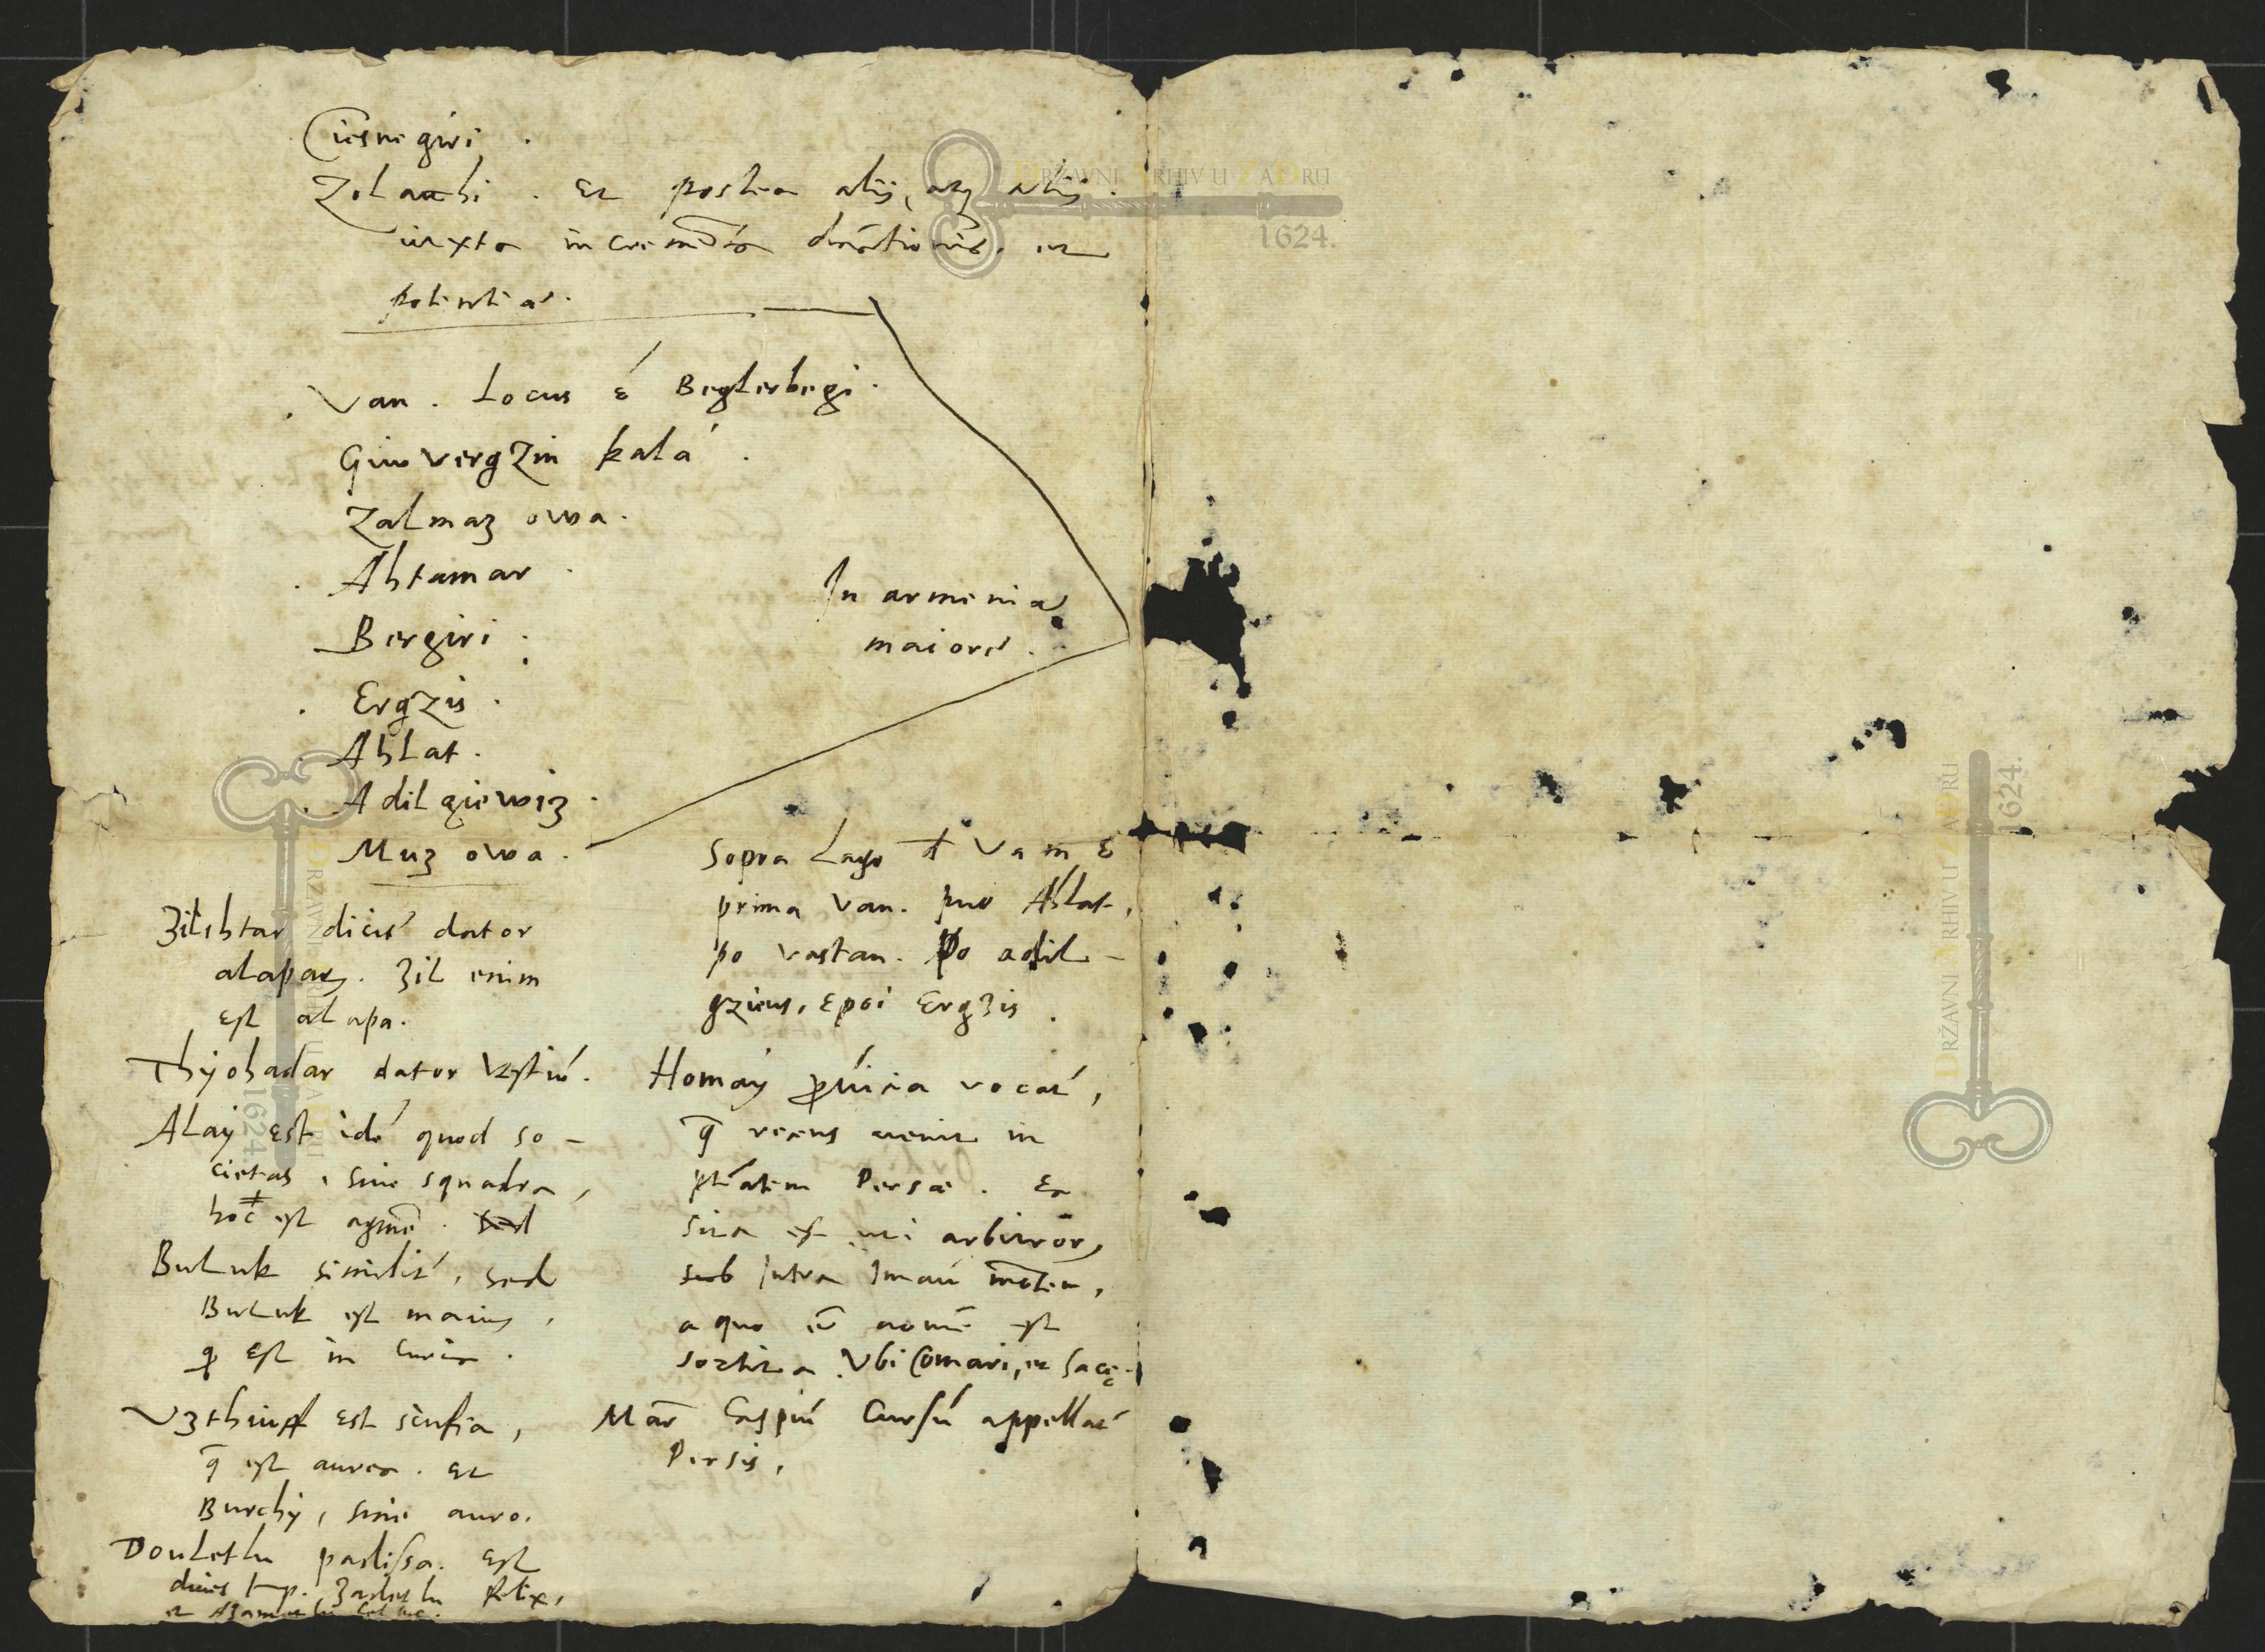 Ciesnegiri.
Zolachi. Et postea alij, atq alij
iuxta incremēta durationis. et
potentiae.
Van. Locus é Beglerbegi.
Giuvergzin kalá.
Zalmaz owa.
Ahtamar
Bergiri.
Ergzis.
Ahlat.
Adilgiewiz.
Muz owa.
In armenia
maiore.
Zilihtar dicit́ dator
alapar. Zil enim
est alapa.
Thijohadar dator
Alaij est idé quod so-
cietas, siue squadra,
hoc est agmē. sed
Buluk similit́, sed
Buluk est maius,
est in curia.
Vzthiuff est scufia,
q̄ est aurea. Et
Burchij, sine auro.
Douletlu padissa. Est
diues Imp. felix,
Sopra Lago d Vam é
prima Van. Ahlat,
po vastan. Po adil-
gzieus, e poi Ergzis.
Homaij ꝓuícia vocat́,
q̄ recens uenit in
ptátem Persae. Ea
sita est uti arbitror,
sub Intra Imaú mōtem,
a quo et nomē est
sortita. Vbi Comari, et Sacę.
Mar̄ Caspiú Cursú appellat́
Persis.
DRŽAVNI ARHIV U ZADRU
1624.
DRŽAVNI ARHIV U ZADRU
1624.
DRŽAVNI ARHIV U ZADRU
1624.